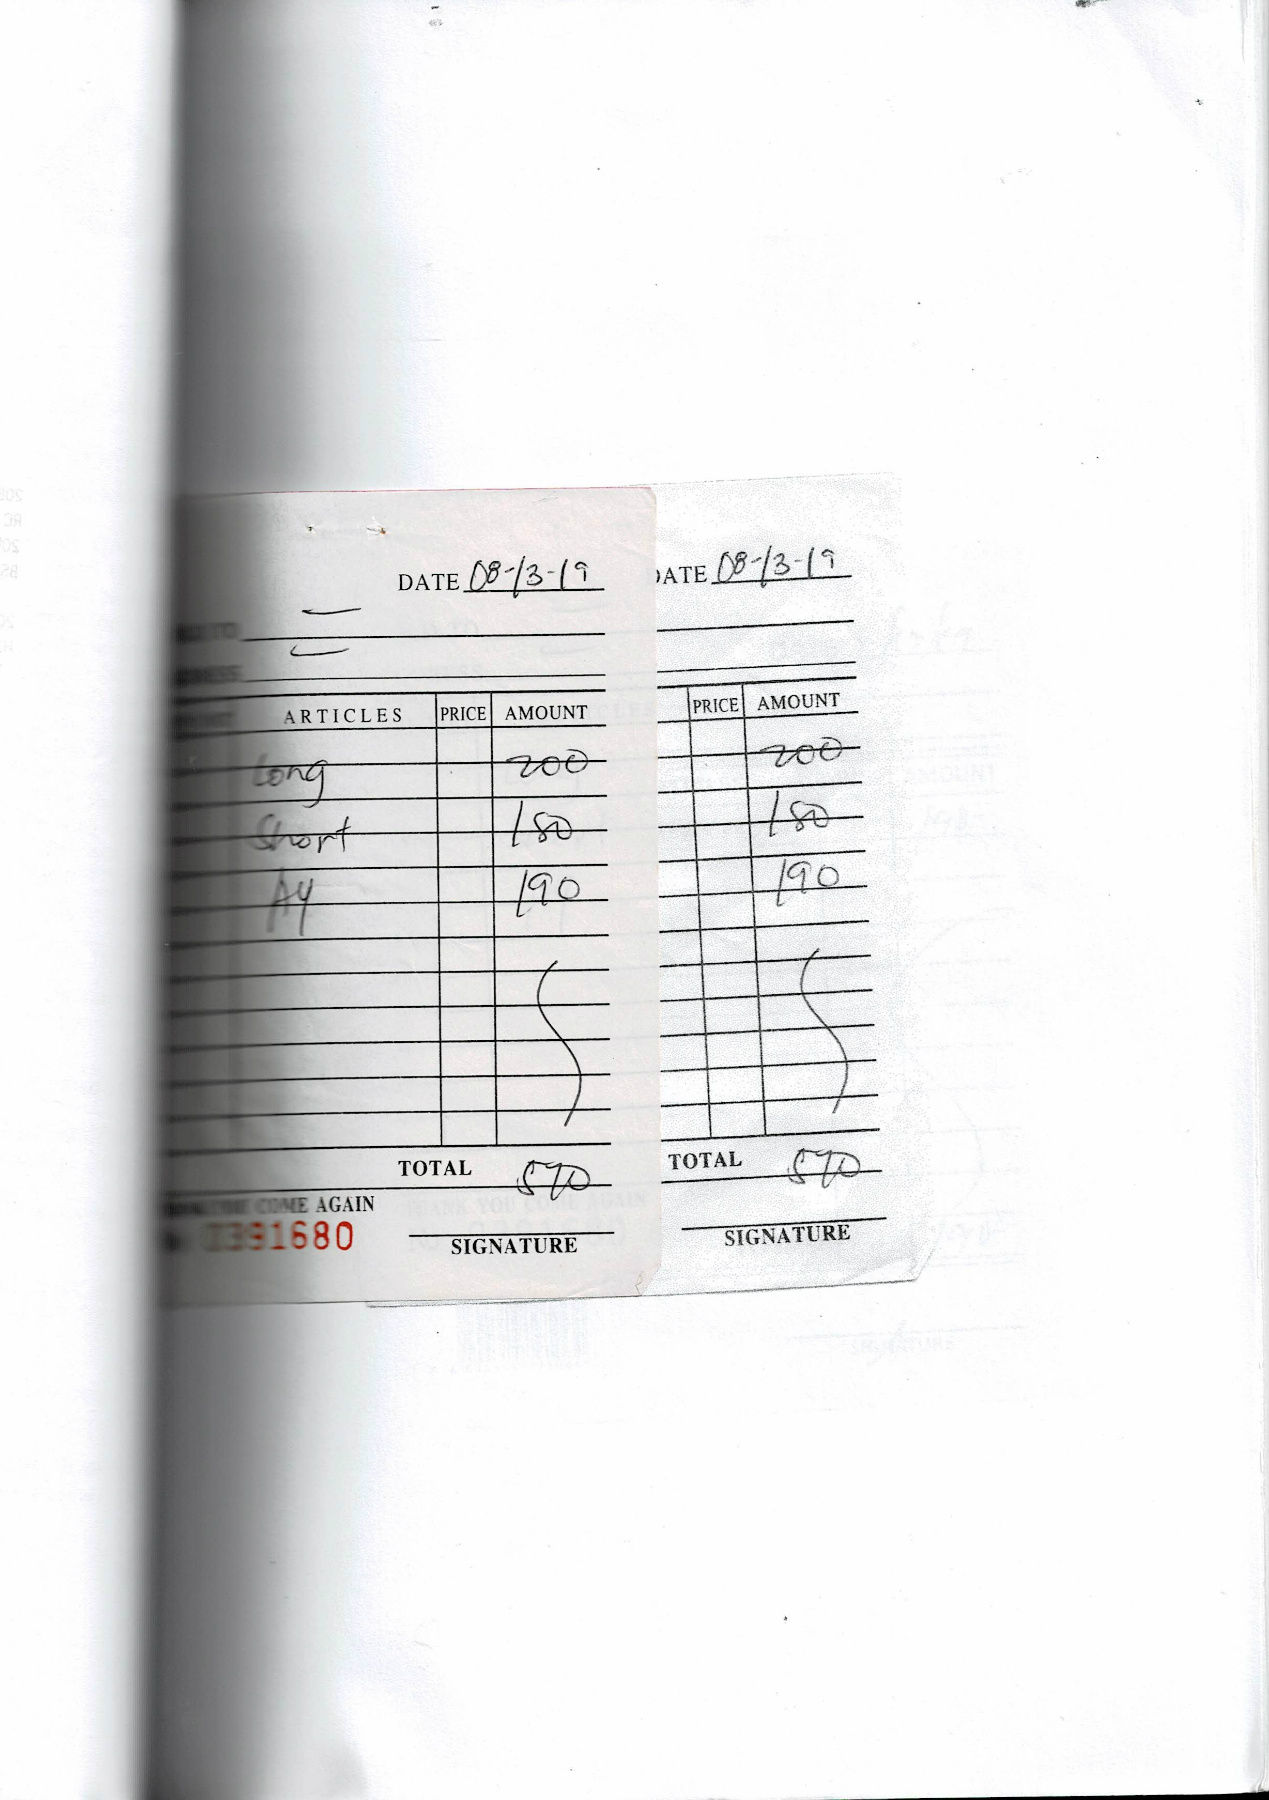 DATE 08-13-19
ARTICLES PRICE AMOUNT
Long 200
Short 180
A4 190
TOTAL 570
COME AGAIN
91680
SIGNATURE
DATE 08-13-19
PRICE AMOUNT
200
180
190
TOTAL 570
SIGNATURE